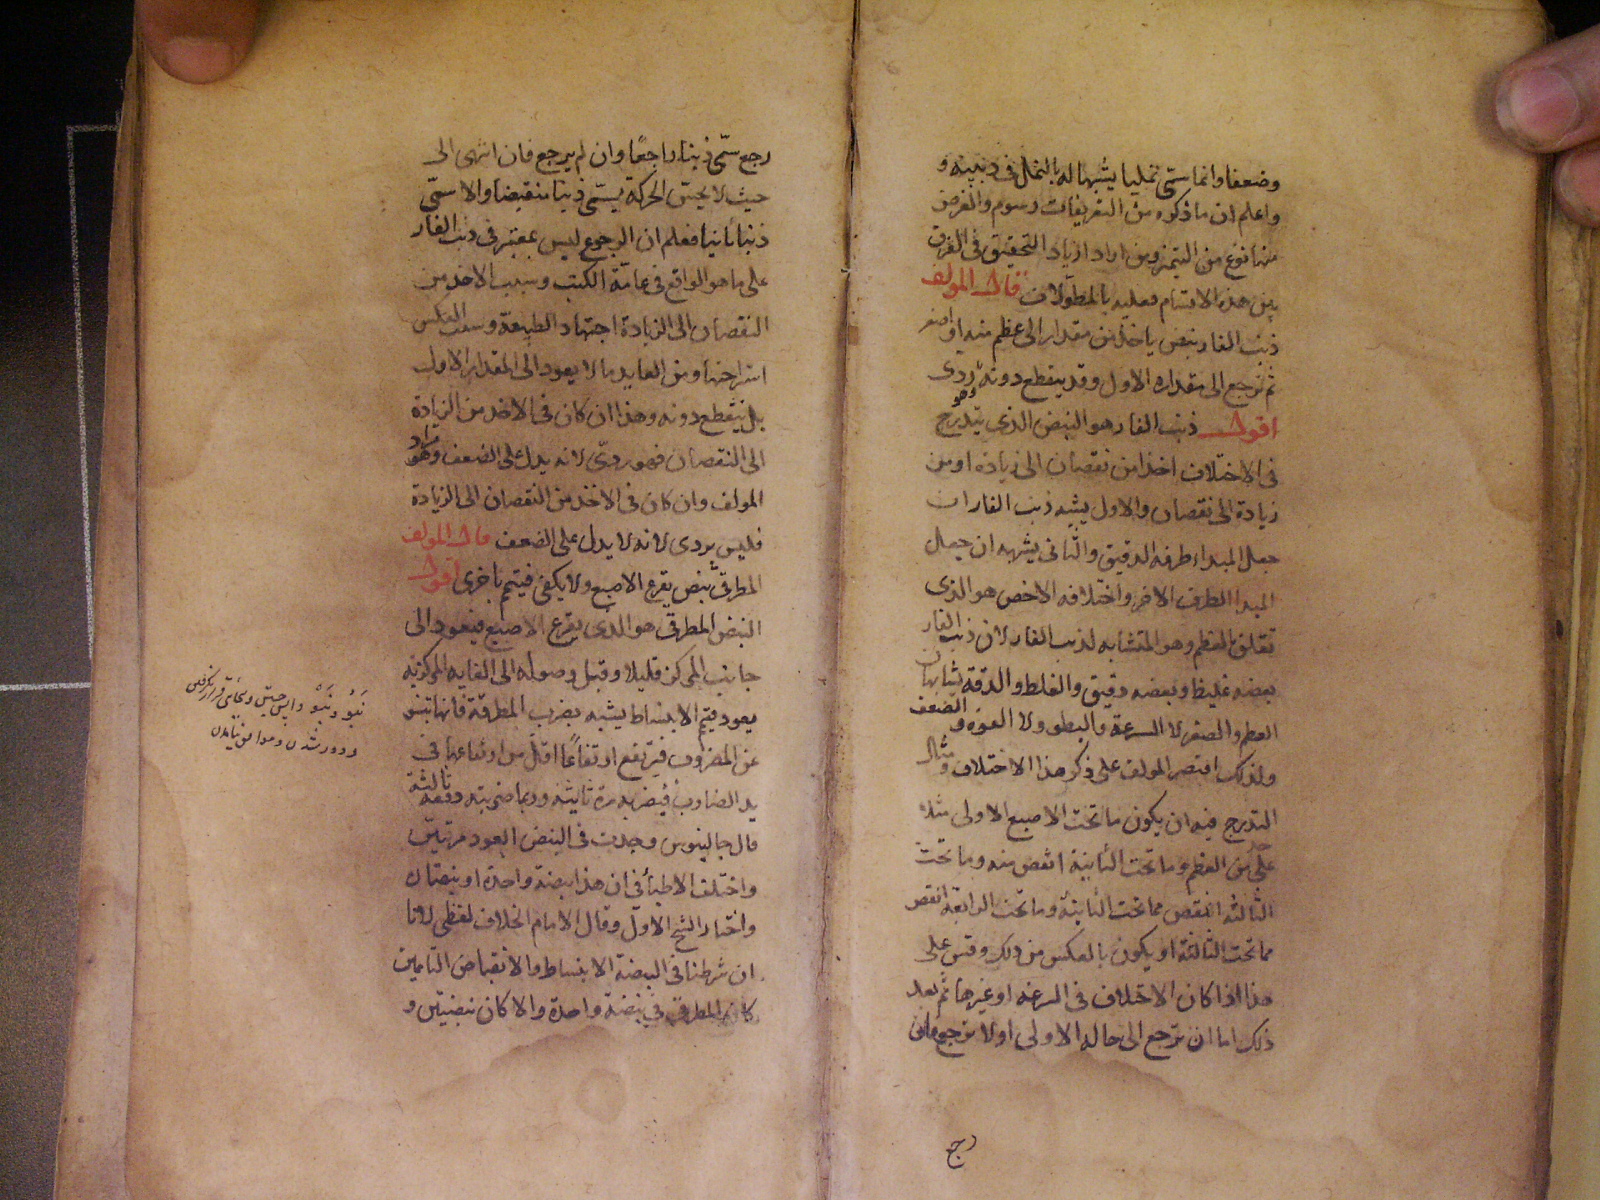 وضعفا وانما سمى نمليا يشبها له بالنمل فى دبيبه و
واعلم ان ما ذكره من التعريفات رسوم والغرض
منها نوع من التميز ومن اراد ازياد التحقيق فى الفرق
بين هذه الاقسام فعليه بالمطولات قال المولف
ذنب الفار نبض ياخذ من مقدار الى عظم منه او اصغر
ثم ترجع الى مقداره الاول وقد ينقطع دونه وهو ردى
اقول ذنب الفار هو النبض الذى يتدرج
فى الاختلاف اخذا من نقصان الى زيادة او من
زيادة الى نقصان والاول يشبه ذنب الفار ان
جعل المبداء طرفه الدقيق والثانى يشبهه ان جعل
المبدا الطرف الاخر واختلافه الاخص هو الذى
تعلق بالعظم وهو المتشابه لذنب الفار لان ذنب الفار
بعضه غليظ وبعضه دقيق والغلظ والدقة يشابهان
العظم والصغر لا السرعة والبطو ولا القوة والضعف
ولذلك اقتصر المولف على ذكر هذا الاختلاف ومثال
التدرج فيه ان يكون ما تحت الاصبع الاولى مثلا
على من العظم وما تحت الثانية انقص منه وما تحت
الثالثه انقص مما تحت الثانية وما تحت الرابعة انقص
مما تحت الثالثة او يكون بالعكس من ذلك وقس على
هذا اذا كان الاختلاف فى السرعه او غيرها ثم بعد
ذلك اما ان ترجع الى حاله الاولى اولا ترجع فان
رجع
رجع سمى ذنبا راجعا وان لم يرجع فان انتهى الى
حيث لا يحس الحركة يسمى ذنبا منقضيا والا سمى
ذنبا ثابتا فعلم ان الرجوع ليس بمعتبر فى ذنب الفار
على ما هو الواقع فى عامة الكتب وسبب الاخذ من
النقصان الى الزيادة اجتهاد الطبيعة وسبب العكس
استراحتها ومن العايد ما لا يعود الى المقدار الاول
بل ينقطع دونه وهذا ان كان فى الاخذ من الزيادة
الى النقصان فهو ردى لانه يدل على الضعف وهو مراد
المولف وان كان فى الاخذ من النقصان الى الزيادة
فليس بردى لانه لا يدل على الضعف قال المولف
المطرقى نبض يقرع الاصبع ولا يكفى فيتم باخرى اقول
النبض المطرقى هو الذى يقرع الاصبع فيعود الى
جانب المركز قليلا وقبل وصوله الى الغايه المركزيه
يعود فيتم الانبساط يشبه بضرب المطرقة فانها تنبو
عن المضروب فيرتفع ارتفاعا اقل من ارتفاعها فى
يد الضارب فيضربه مرة ثانيه وربما ضربته دفعة ثالثة
قال جالينوس وجدت فى النبض العود مرتين
واختلف الاطبا فى ان هذا نبضة واحدة او نبضتان
واختار الشيخ الاول وقال الامام الخلاف لفظى لانا
ان شرطنا فى النبضة الانبساط والانقباض التامين
كان المطرقى نبضة واحدة والا كان نبضتين و
نبو ونبو
ودور شدن وموافق نيامدن